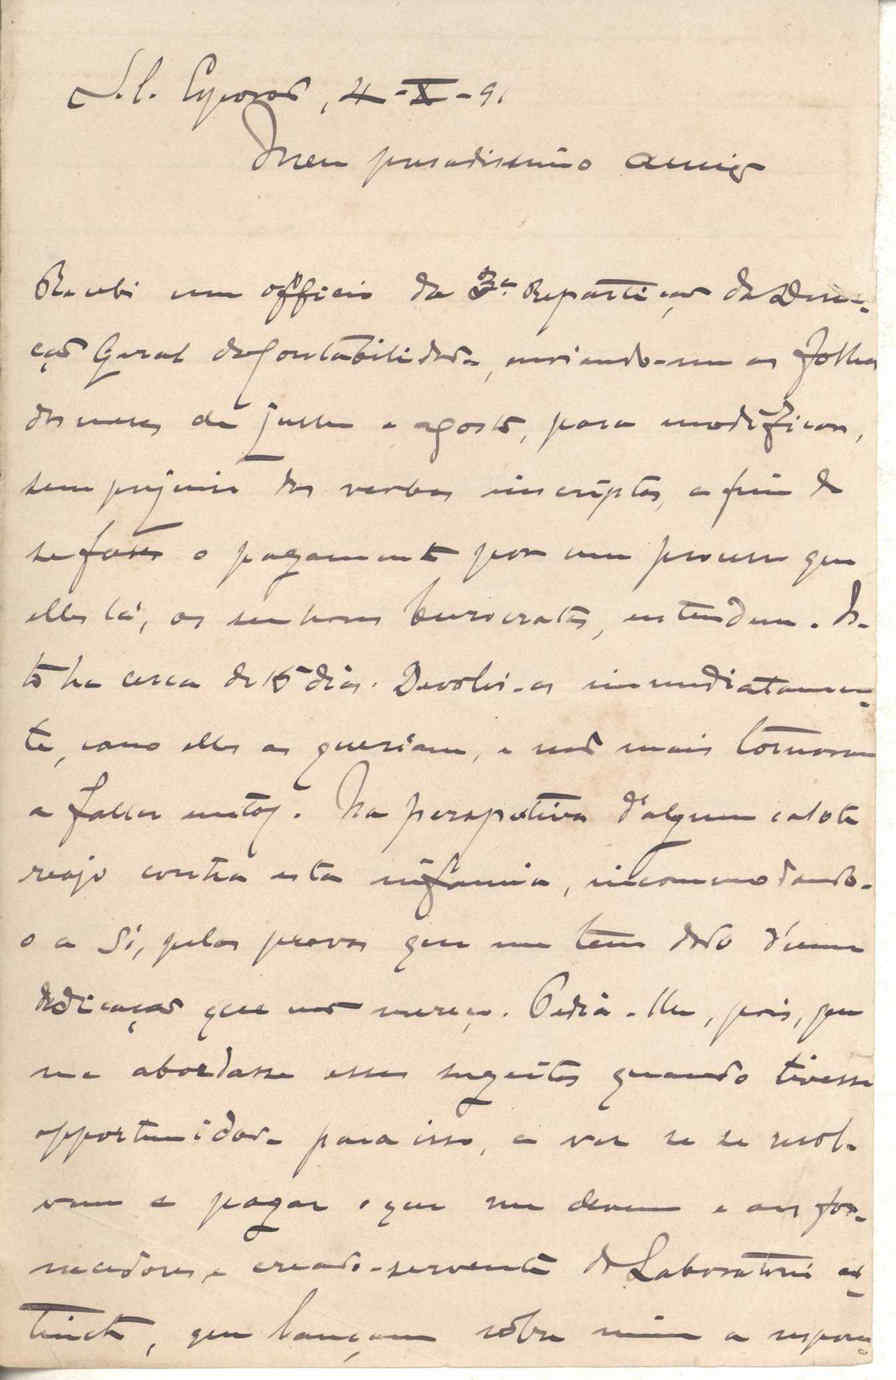 S. C. Esporões, 4-X-91
Meu presadissimo amigo
Recebi um officio da 3ª Repartição da Direc-
ção Geral da Contabilidade, enviando-me as folhas
dos meses de julho e agosto, para modificar,
sem prejuizo das verbas inscriptas, a fim de
se fazer o pagamento por um processo que
elles lá, os senhores burocratas, entendem. Is-
to ha cerca de 15 dias. Devolvi-as immediatamen-
te, como elles as queriam, e não mais tornaram
a fallar n'estas. Na perspetiva d'algum calote
reajo contra esta infamia, incommodando-
o a Si, pelas provas que me tem dado d'uma
dedicação que não mereço. Pedia-lhe, pois, que
me abordasse esses sugeitos quando tivesse
opportunidade para isso, a ver se se resol-
vem a pagar o que me devem e aos for-
necedores e creado-servente do Laboratorio ex-
tincto, que lançam sobre mim a respon-